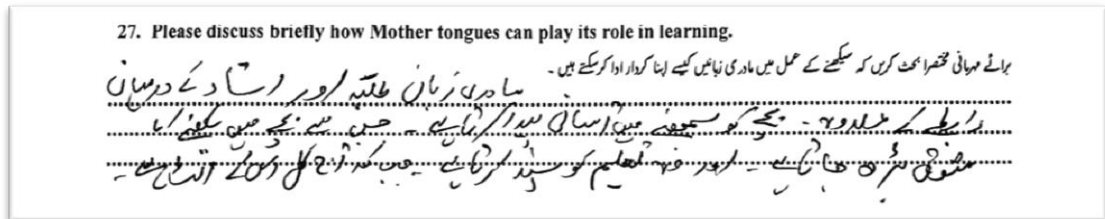 27. Please discuss briefly how Mother tongues can play its role in learning.
برائے مہربانی مختصرا بحث کریں کہ سیکھنے کے عمل میں مادری زبانیں کیسے اپنا کردار ادا کرسکتے ہیں۔
مادری زبان طلبہ اور استاد کے درمیان
رابطے کے علاوہ ۔ بچے کو سمجھنے میں آسانی پیدا کرتا ہے ۔ جس سے بچے میں سیکھنے کا
شوق بڑھ جاتا ہے ۔ اور وہ تعلیم کو پسند کرتا ہے ۔ جب کہ آج کل اس کے الٹ ہے ۔